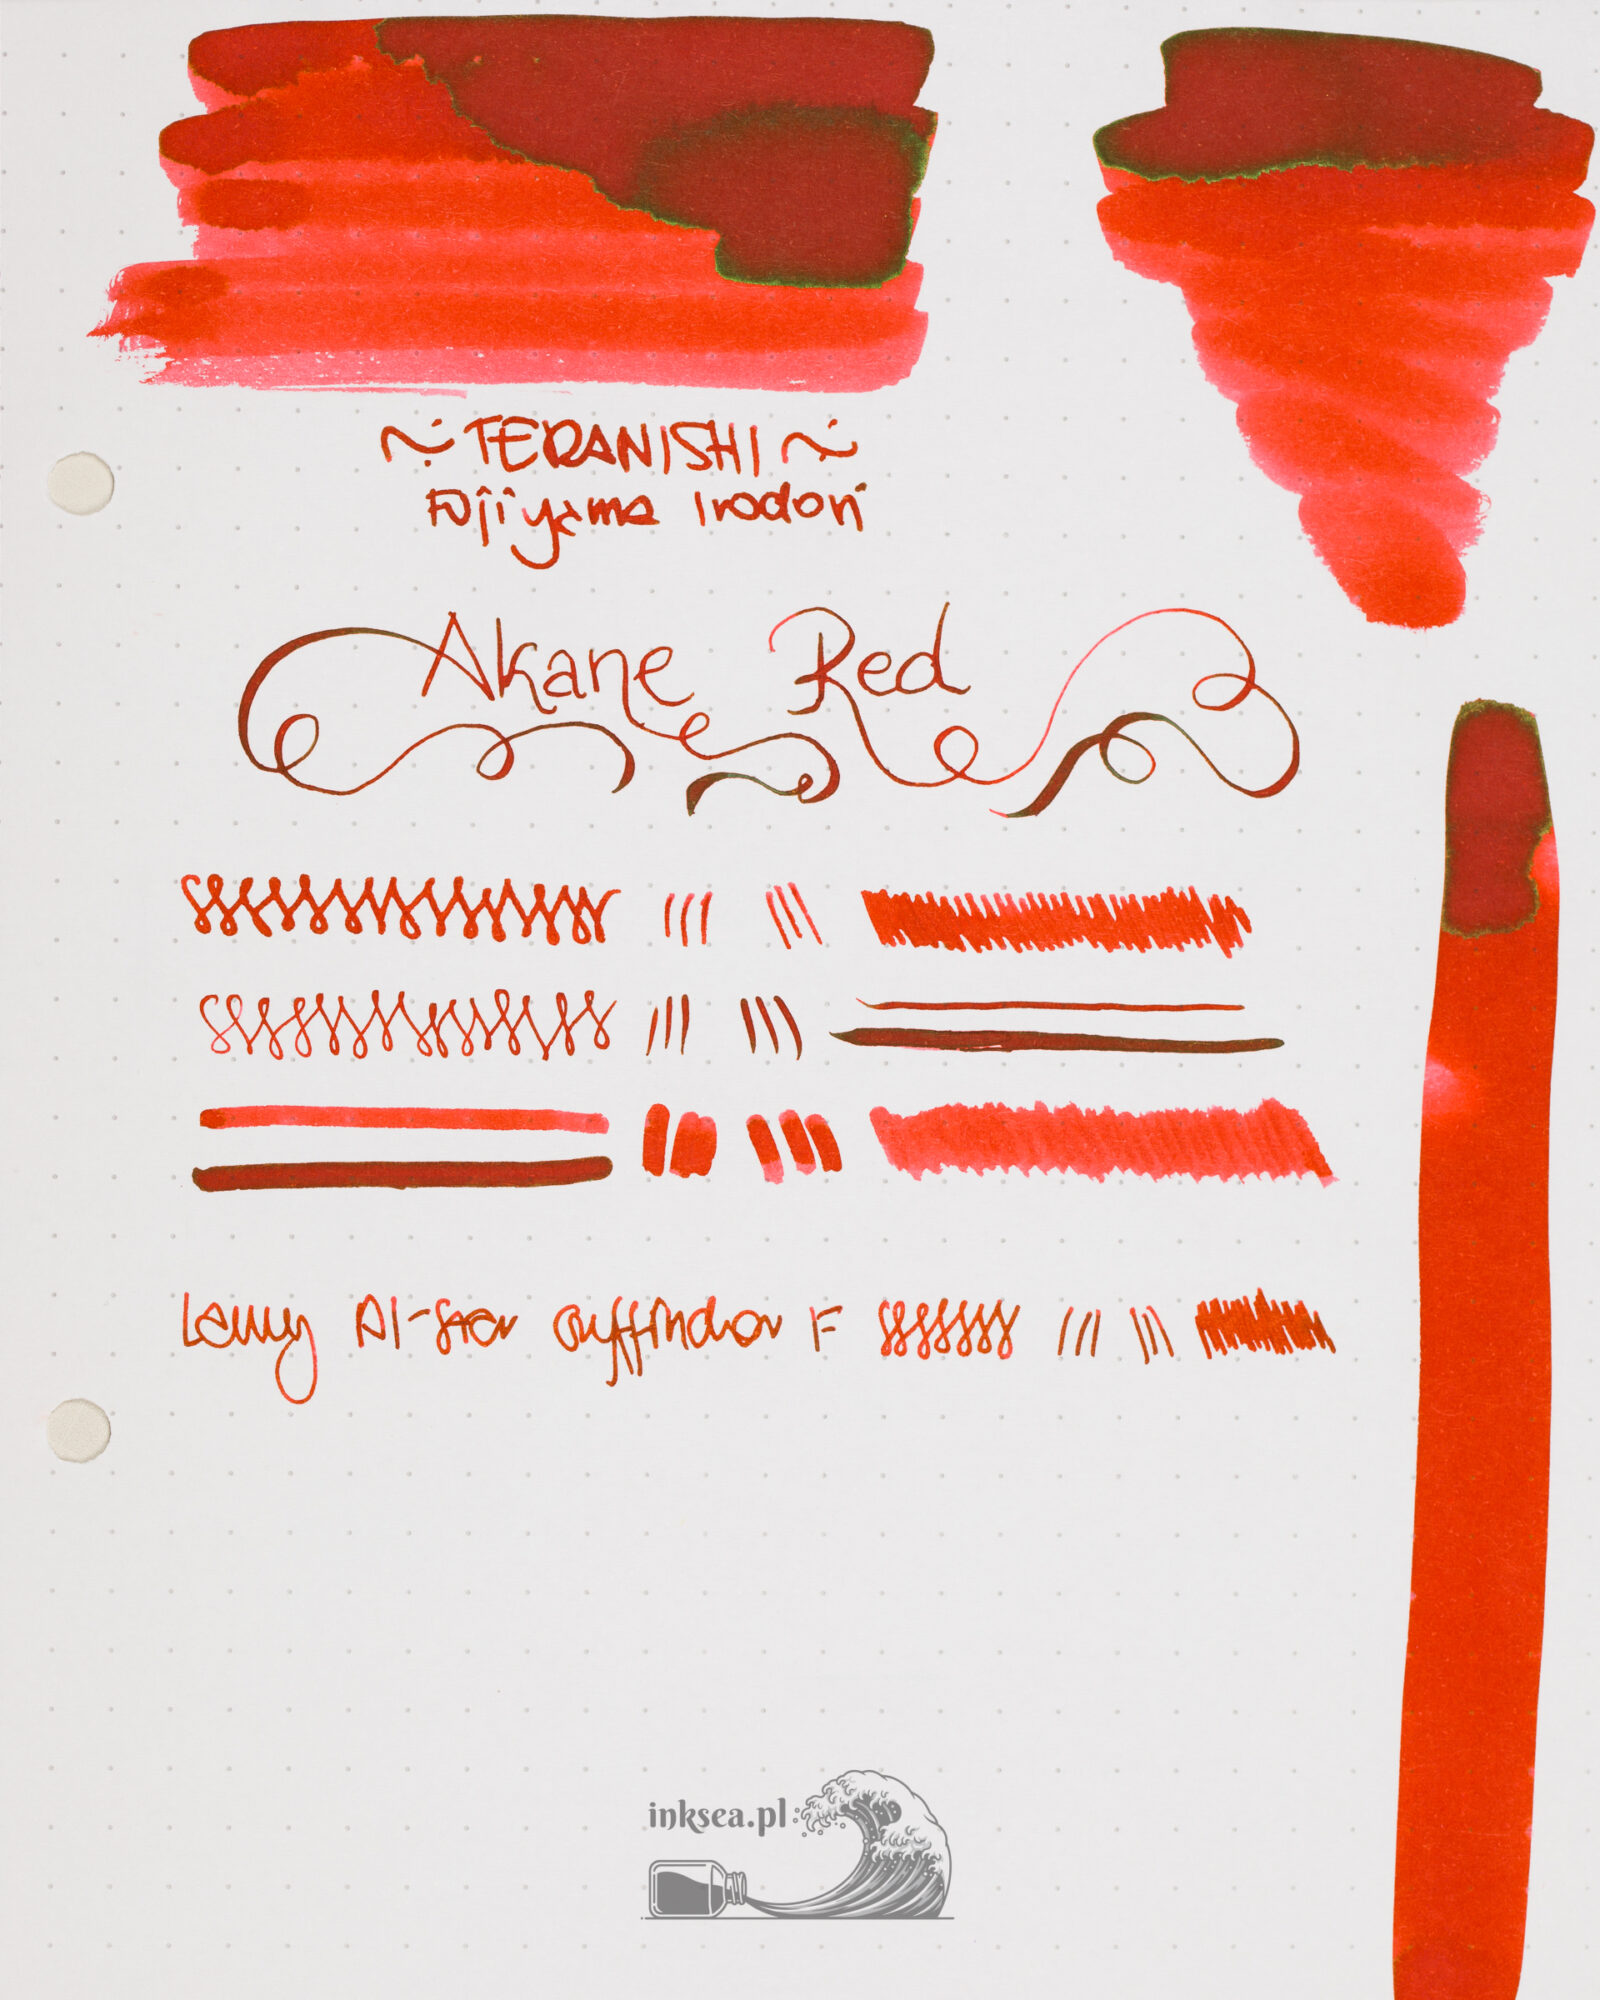 ~ TERANISHI ~
Fujiyama Irodori
Akane Red
Lamy Al-Star Gryffindor F
inksea.pl